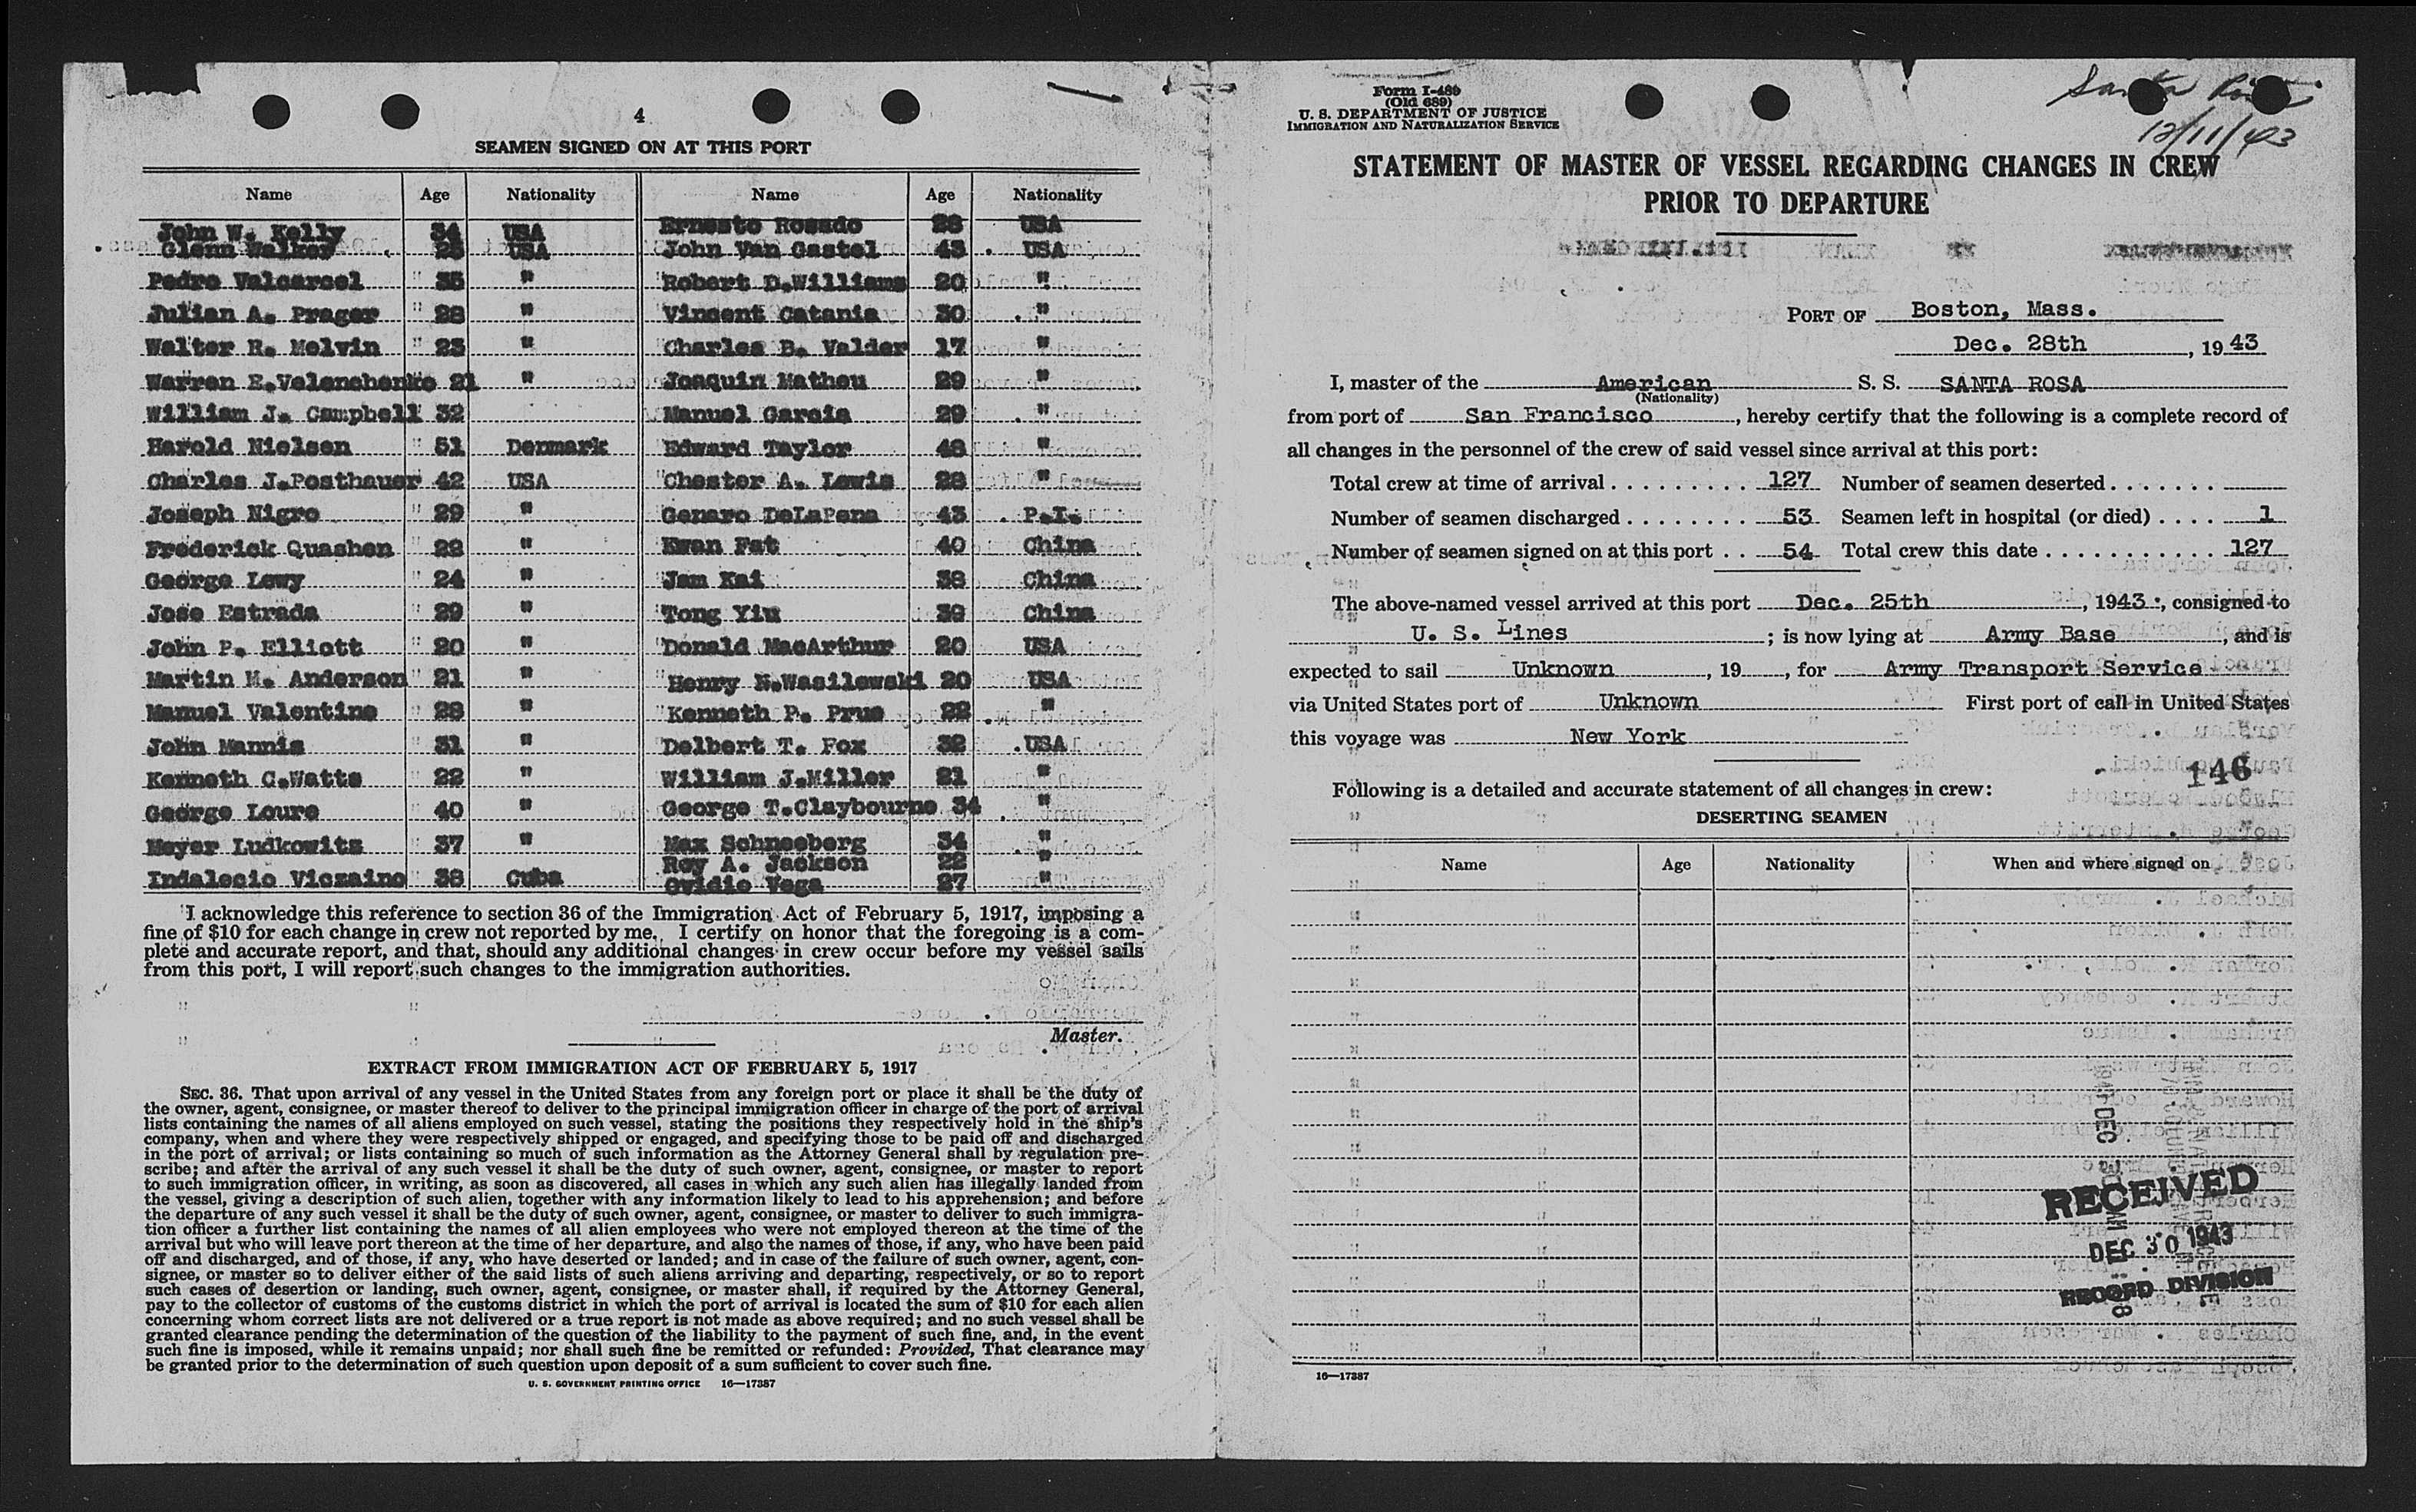 4
SEAMEN SIGNED ON AT THIS PORT
Name Age Nationality Name Age Nationality
John W. Kelly 34 USA Ernesto Rosado 28 USA
Glenn Walker 25 USA John Van Gastel 43 USA
Pedro Valcarcel 35 " Robert D.Williams 20 "
Julian A. Prager 28 " Vincent Catania 30 "
Walter R. Melvin 23 " Charles B. Valder 17 "
Warren E.Velenchenko 21 " Joaquin Matheu 29 "
William J. Campbell 32 Manuel Garcia 29 "
Harold Nielsen 51 Denmark Edward Taylor 48 "
Charles J.Posthauer 42 USA Chester A. Lewis 28 "
Joseph Nigro 29 " Genaro DeLaPena 43 P.I.
Frederick Quashen 22 " Kwan Fat 40 China
George Lowy 24 " Jam Kai 38 China
Jose Estrada 29 " Tong Yiu 39 China
John P. Elliott 20 " Donald MacArthur 20 USA
Martin M. Anderson 21 " Henry N.Wasilewski 20 USA
Manuel Valentine 28 " Kenneth P. Prue 22 "
John Mannis 31 " Delbert T. Fox 32 USA
Kenneth C.Watts 22 " William J.Miller 21 "
George Loure 40 " George T.Claybourne 34 "
Meyer Ludkowitz 37 " Max Schneeberg 34 "
Roy A. Jackson 22 "
Indalecio Viczaino 38 Cuba Ovidio Vega 27 "
I acknowledge this reference to section 36 of the Immigration Act of February 5, 1917, imposing a
fine of $10 for each change in crew not reported by me. I certify on honor that the foregoing is a com-
plete and accurate report, and that, should any additional changes in crew occur before my vessel sails
from this port, I will report such changes to the immigration authorities.
Master.
EXTRACT FROM IMMIGRATION ACT OF FEBRUARY 5, 1917
SEC. 36. That upon arrival of any vessel in the United States from any foreign port or place it shall be the duty of
the owner, agent, consignee, or master thereof to deliver to the principal immigration officer in charge of the port of arrival
lists containing the names of all aliens employed on such vessel, stating the positions they respectively hold in the ship's
company, when and where they were respectively shipped or engaged, and specifying those to be paid off and discharged
in the port of arrival; or lists containing so much of such information as the Attorney General shall by regulation pre-
scribe; and after the arrival of any such vessel it shall be the duty of such owner, agent, consignee, or master to report
to such immigration officer, in writing, as soon as discovered, all cases in which any such alien has illegally landed from
the vessel, giving a description of such alien, together with any information likely to lead to his apprehension; and before
the departure of any such vessel it shall be the duty of such owner, agent, consignee, or master to deliver to such immigra-
tion officer a further list containing the names of all alien employees who were not employed thereon at the time of the
arrival but who will leave port thereon at the time of her departure, and also the names of those, if any, who have been paid
off and discharged, and of those, if any, who have deserted or landed; and in case of the failure of such owner, agent, con-
signee, or master so to deliver either of the said lists of such aliens arriving and departing, respectively, or so to report
such cases of desertion or landing, such owner, agent, consignee, or master shall, if required by the Attorney General,
pay to the collector of customs of the customs district in which the port of arrival is located the sum of $10 for each alien
concerning whom correct lists are not delivered or a true report is not made as above required; and no such vessel shall be
granted clearance pending the determination of the question of the liability to the payment of such fine, and, in the event
such fine is imposed, while it remains unpaid; nor shall such fine be remitted or refunded: Provided, That clearance may
be granted prior to the determination of such question upon deposit of a sum sufficient to cover such fine.
U. S. GOVERNMENT PRINTING OFFICE 16—17387
Form I-489
(Old 689)
U. S. DEPARTMENT OF JUSTICE
IMMIGRATION AND NATURALIZATION SERVICE
Santa Rosa
12/11/43
STATEMENT OF MASTER OF VESSEL REGARDING CHANGES IN CREW
PRIOR TO DEPARTURE
PORT OF Boston, Mass.
Dec. 28th, 1943
I, master of the American S. S. SANTA ROSA
(Nationality)
from port of San Francisco, hereby certify that the following is a complete record of
all changes in the personnel of the crew of said vessel since arrival at this port:
Total crew at time of arrival . . . . . . . . . 127 Number of seamen deserted . . . . . . .
Number of seamen discharged . . . . . . . . 53 Seamen left in hospital (or died) . . . . 1
Number of seamen signed on at this port . . 54 Total crew this date . . . . . . . . . . . 127
The above-named vessel arrived at this port Dec. 25th, 1943, consigned to
U. S. Lines; is now lying at Army Base, and is
expected to sail Unknown, 19 , for Army Transport Service
via United States port of Unknown First port of call in United States
this voyage was New York.
146
Following is a detailed and accurate statement of all changes in crew:
DESERTING SEAMEN
Name Age Nationality When and where signed on
RECEIVED
DEC 30 1943
RECORD DIVISION
16—17387